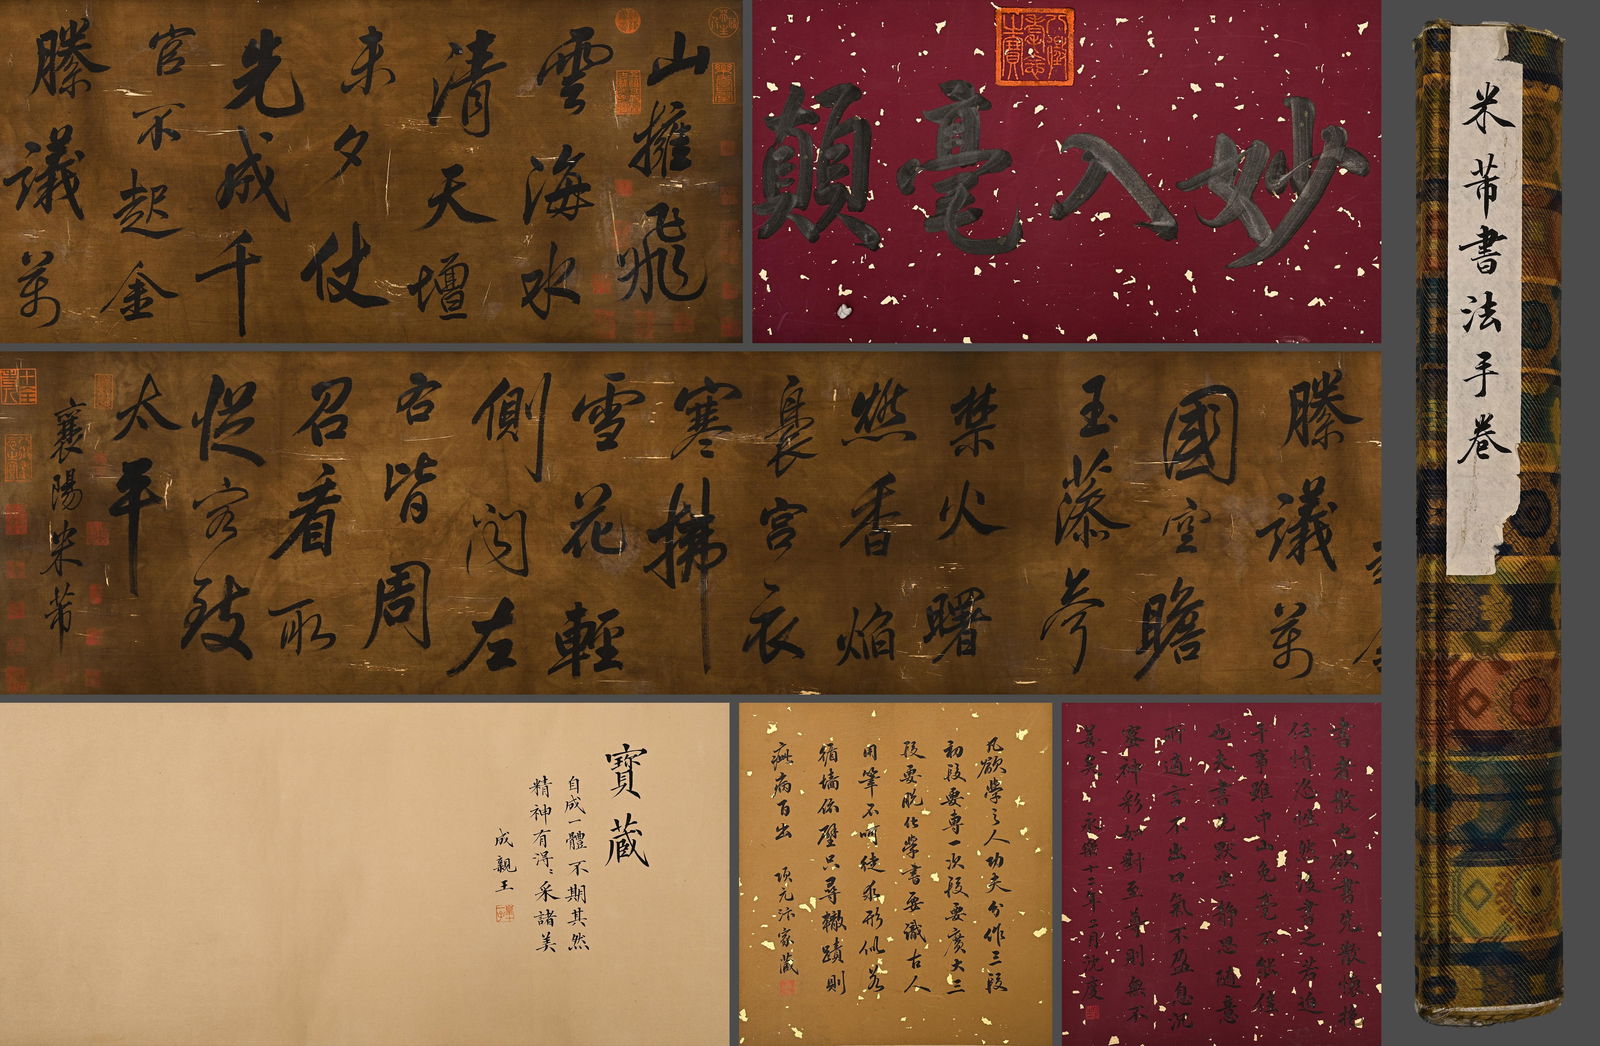 山擁飛
雲海水
清天壇
未夕仗
先成千
官不起金
縢議萬
妙入毫顛
米芾書法手卷
縢議萬
國空瞻
玉藻夸
禁火曙
燃香焰
裊宮衣
寒拂
雪花輕
側聞左
右皆周
召看取
從容致
太平
襄陽米芾
書者散也欲書先散懷抱
任情恣性然後書之若迫
于事雖中山兔毫不能佳
也夫書先默坐靜思隨意
所適言不出口氣不盈息沉
密神彩如對至尊則無不
善矣永樂十二年三月沈度
凡欲學之人功夫分作三段
初段要專一次段要廣大三
段要脫化學書要識古人
用筆不呵徒求形似若
循墻依壁只尋轍蹟則
疵病百出 項元汴家藏
寶藏
自成一體不期其然
精神有得〻采諸美
成親王